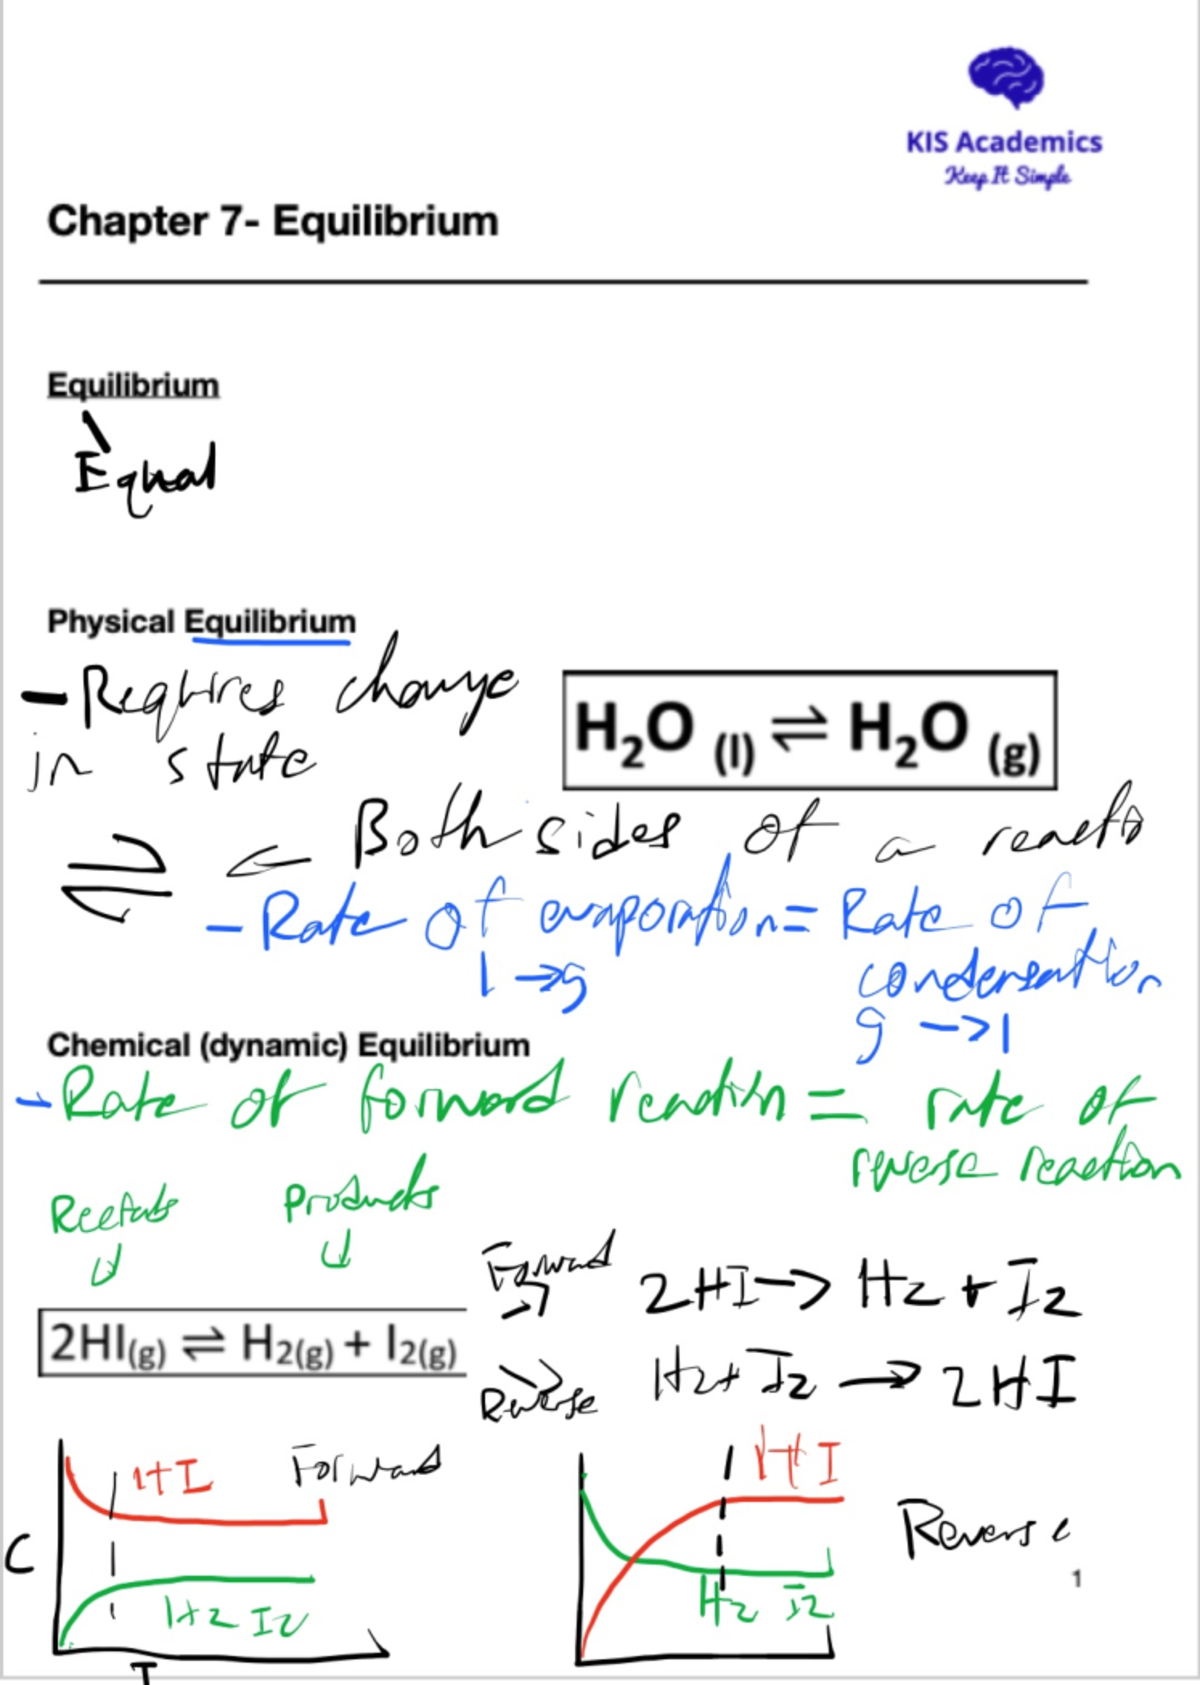 KIS Academics
Keep It Simple
Chapter 7- Equilibrium
Equilibrium
Equal
Physical Equilibrium
- Requires change
in state
H₂O (l) ⇌ H₂O (g)
⇌ ← Both sides of a
- Rate of evaporation = Rate of
condensation
l → g
g → l
Chemical (dynamic) Equilibrium
- Rate of forward reaction = rate of
reverse reaction
Products
↓ ↓
Forward 2HI → H2 + I2
2HI(g) ⇌ H2(g) + I2(g)
Reverse H2 + I2 → 2HI
HI Forward
C
H2 I2
T
HI
Reverse
H2 I2
1